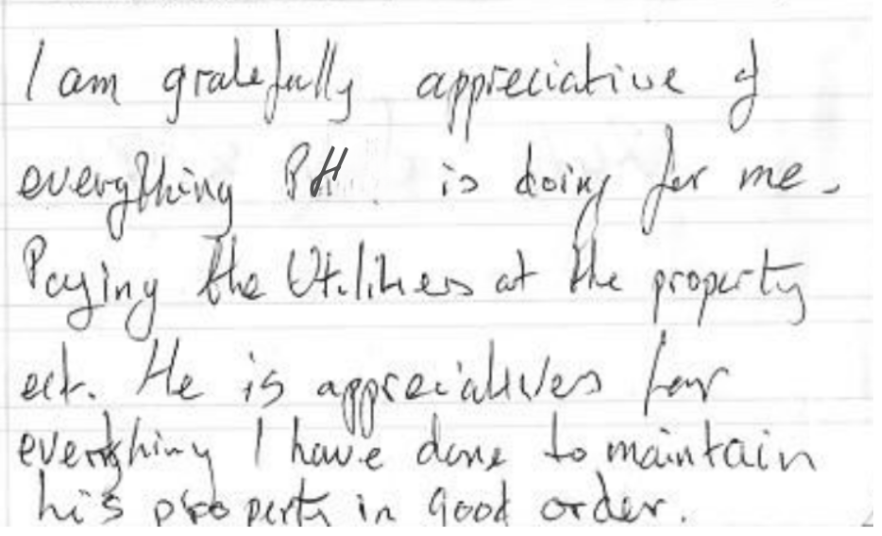 I am gratefully appreciative of
everything PH. is doing for me.
Paying the Utilities at the property
ect. He is appreciatives for
everything I have done to maintain
his property in good order.